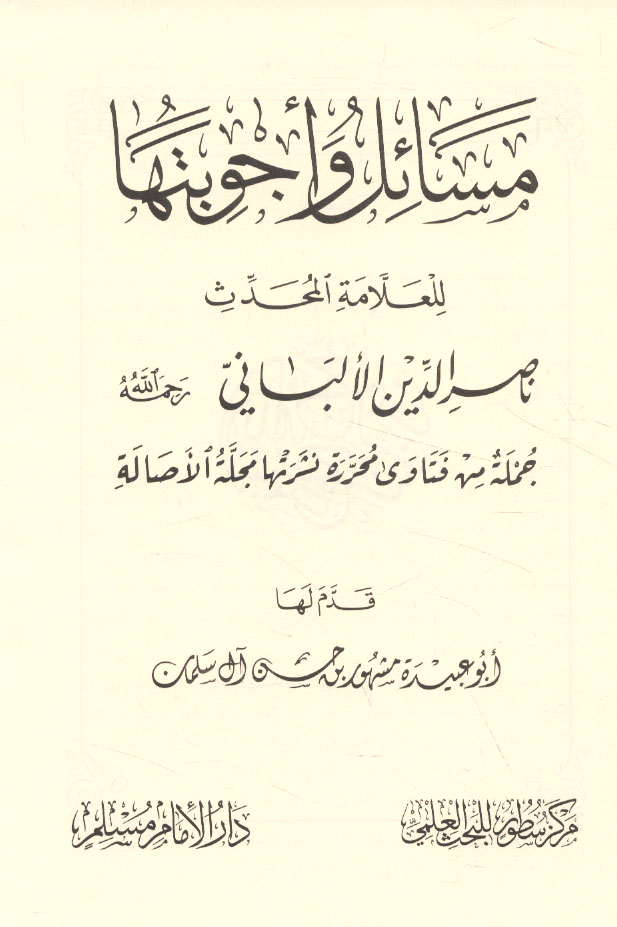 مَسَائِل وَأَجْوِبَتُهَا
لِلْعَلَّامَةِ ٱلْمُحَدِّثِ
نَاصِرِ الدِّيْنِ الأَلْبَانِيِّ رَحِمَهُ ٱللَّهُ
جُمْلَةٌ مِنْ فَتَاوَىٰ مُحَرَّرَة نَشَرَتْهَا مَجَلَّةُ ٱلأَصَالَةِ
قَدَّمَ لَهَا
أَبُو عُبَيْدَة مَشْهُور بن حَسَن آل سَلْمَان
مَرْكَزُ سُطُورٍ لِلْبَحْثِ الْعِلْمِيِّ
دَارُ الْإِمَامِ مُسْلِمٍ